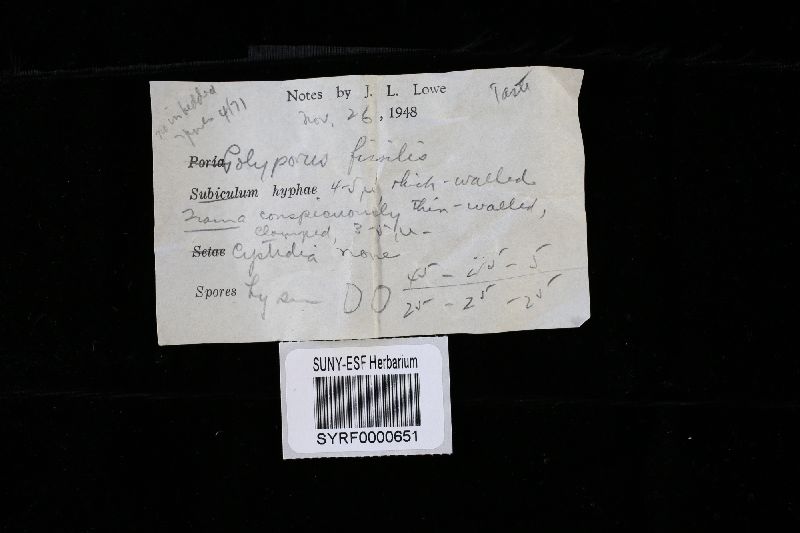 re imbedded
4/71
Notes by J. L. Lowe
Taste
Nov. 26, 1948
Poria Polyporus fissilis
Subiculum hyphae 4-5 µ, thick-walled
Trama conspicuously thin-walled,
clamped, 3-5 µ-
Setae Cystidia none
Spores hy
45 - 45 - 5
25 - 25 - 25
SUNY-ESF Herbarium
SYRF0000651